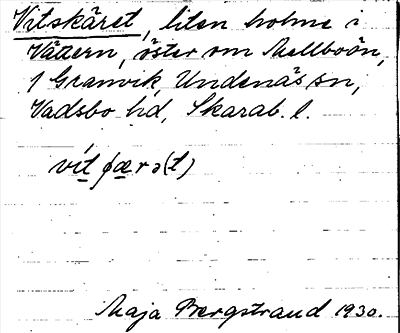 Vitskäret, liten holme i
Vättern, öster om Mellboön,
f Granvik, Undenäs sn,
Vadsbo hd, Skarab. l.
Maja Bergstrand 1930.